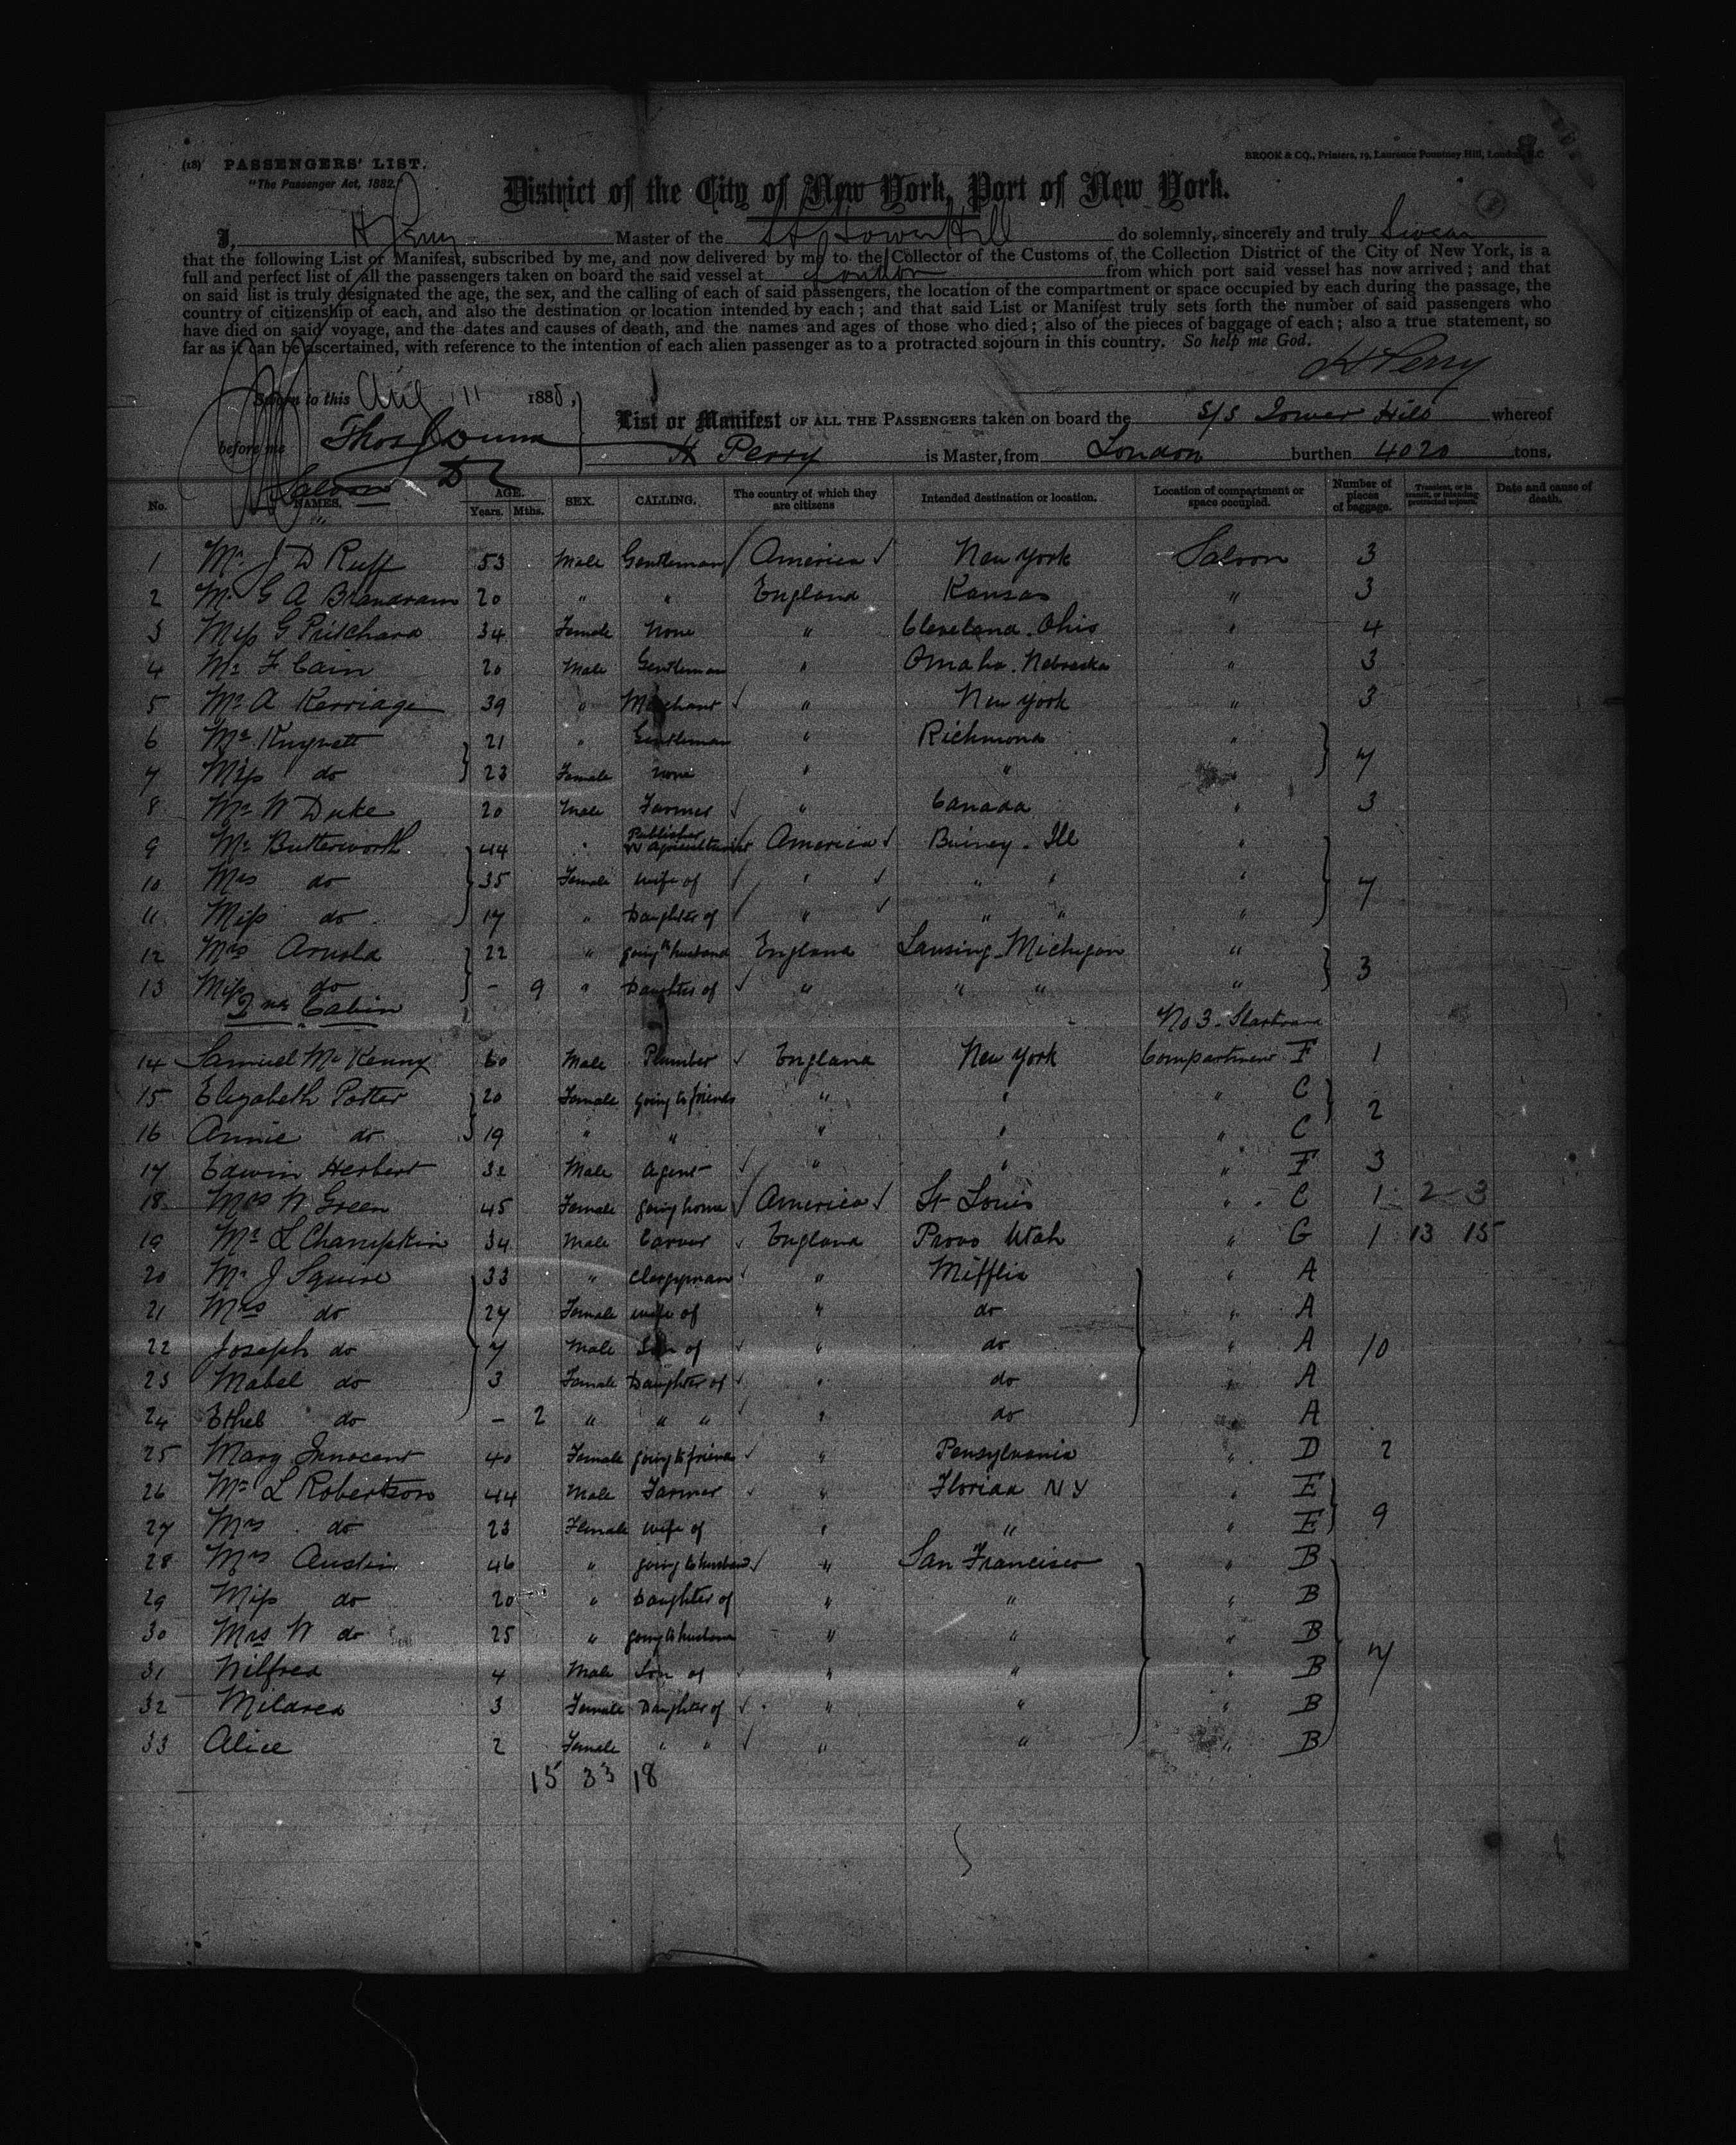 (18) PASSENGERS' LIST.
BROOK & CO., Printers, 19, Laurence Pountney Hill, London, E.C
"The Passenger Act, 1882."
District of the City of New York, Port of New York.
I, H Perry Master of the SS Tower Hill do solemnly, sincerely and truly Swear
that the following List or Manifest, subscribed by me, and now delivered by me to the Collector of the Customs of the Collection District of the City of New York, is a
full and perfect list of all the passengers taken on board the said vessel at London from which port said vessel has now arrived; and that
on said list is truly designated the age, the sex, and the calling of each of said passengers, the location of the compartment or space occupied by each during the passage, the
country of citizenship of each, and also the destination or location intended by each; and that said List or Manifest truly sets forth the number of said passengers who
have died on said voyage, and the dates and causes of death, and the names and ages of those who died; also of the pieces of baggage of each; also a true statement, so
far as it can be ascertained, with reference to the intention of each alien passenger as to a protracted sojourn in this country. So help me God.
H Perry
Sworn to this Aug 11 1888,
List or Manifest OF ALL THE PASSENGERS taken on board the S/S Tower Hill whereof
before me Thos Dunn
H Perry is Master, from London burthen 4020 tons.
Saloon
No. NAMES. AGE. Years. Mths. SEX. CALLING. The country of which they are citizens Intended destination or location. Location of compartment or space occupied. Number of pieces of baggage. Transient, or in transit, or intending protracted sojourn. Date and cause of death.
1 Mr J D Ruff 53 Male Gentleman America New York Saloon 3
2 Mr G A Brandram 20 " " England Kansas " 3
3 Miss G Pritchard 34 Female None " Cleveland. Ohio " 4
4 Mr F Cain 20 Male Gentleman " Omaha. Nebraska " 3
5 Mr A Kerriage 39 " Merchant " New York " 3
6 Mr Knyvett 21 " Gentleman " Richmond "
7 Miss do 23 Female None " " " 7
8 Mr W Duke 20 Male Farmer " Canada " 3
9 Mr Butterworth 44 " Publisher Agriculturist America Ill "
10 Mrs do 35 Female wife of " " " " 7
11 Miss do 17 " Daughter of " " " "
12 Mrs Arnold 22 " going to husband England Lansing Michigan "
13 Miss do - 9 " Daughter of " " " " 3
2nd Cabin
No 3. Starboard
14 Samuel McKenny 60 Male Plumber England New York Compartment F 1
15 Elizabeth Potter 20 Female going to friends " " " C
16 Annie do 19 " " " " " C 2
17 Edwin Herbert 32 Male Agent " " " F 3
18 Mrs W Green 45 Female going home America St Louis " C 1 2 3
19 Mr L Champkin 34 Male Carver England Provo Utah " G 1 13 15
20 Mr J Squire 33 " Clergyman " Mifflin " A
21 Mrs do 27 Female wife of " do " A
22 Joseph do 7 Male Son of " do " A 10
23 Mabel do 3 Female Daughter of " do " A
24 Ethel do - 2 " " " " do " A
25 Mary Innocent 40 Female going to friends " Pensylvania " D 2
26 Mr L Robertson 44 Male Farmer " Florida NY " E
27 Mrs do 23 Female wife of " " " E 9
28 Mrs Austin 46 " going to husband " San Francisco " B
29 Miss do 20 " Daughter of " " " B
30 Mrs W do 25 " going to husband " " " B
31 Wilfred 4 Male Son of " " " B 7
32 Mildred 3 Female Daughter of " " " B
33 Alice 2 Female " " " " " B
15 33 18